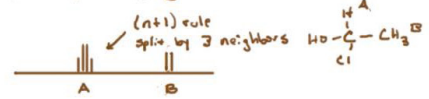 (n+1) rule
split by 3 neighbors
A
B
H A
HO-C-CH3 B
Cl